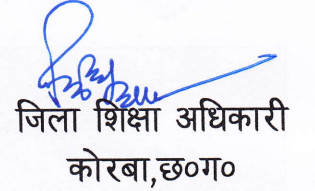 जिला शिक्षा अधिकारी
कोरबा,छ०ग०